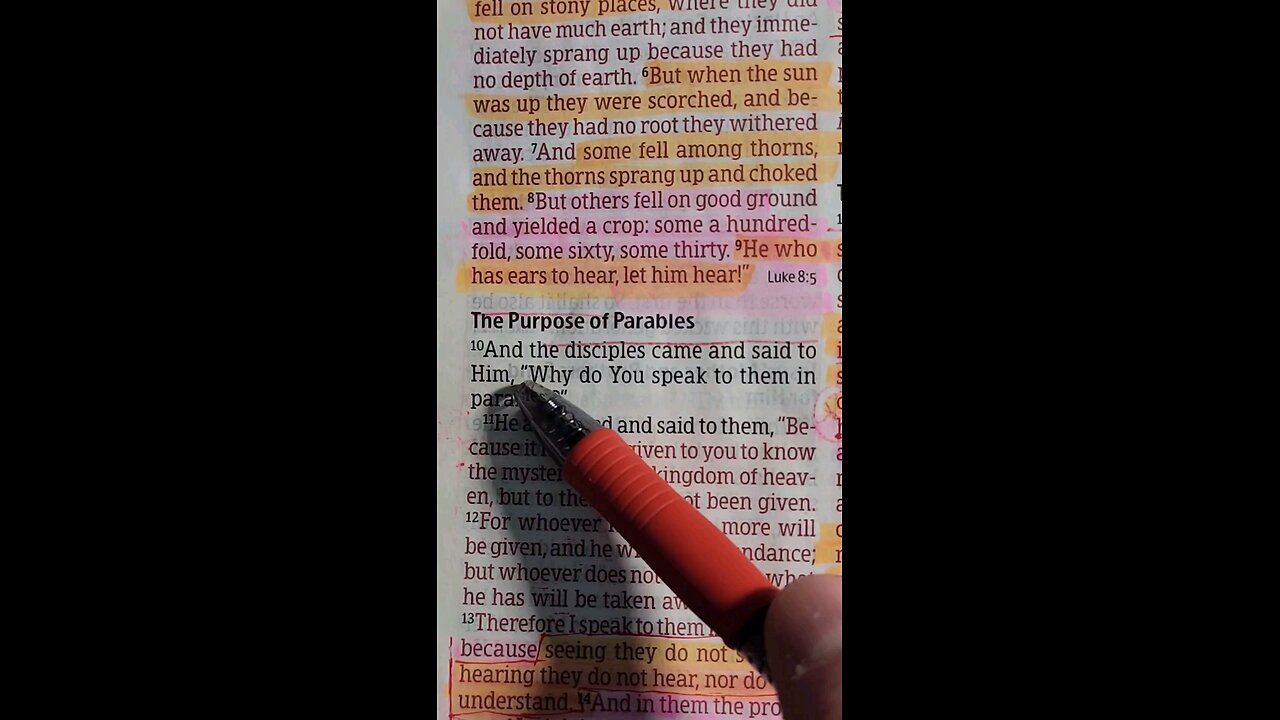 fell on stony places, where they did
not have much earth; and they imme-
diately sprang up because they had
no depth of earth. ⁶But when the sun
was up they were scorched, and be-
cause they had no root they withered
away. ⁷And some fell among thorns,
and the thorns sprang up and choked
them. ⁸But others fell on good ground
and yielded a crop: some a hundred-
fold, some sixty, some thirty. ⁹He who
has ears to hear, let him hear!” Luke 8:5
The Purpose of Parables
¹⁰And the disciples came and said to
Him, “Why do You speak to them in
¹¹He and said to them, “Be-
cause it given to you to know
the kingdom of heav-
en, but to been given.
¹²For whoever more will
be given, and he
but whoever does not what
he has will be taken
¹³Therefore I speak to them
because seeing they do not
hearing they do not hear, nor do
understand. ¹⁴And in them the